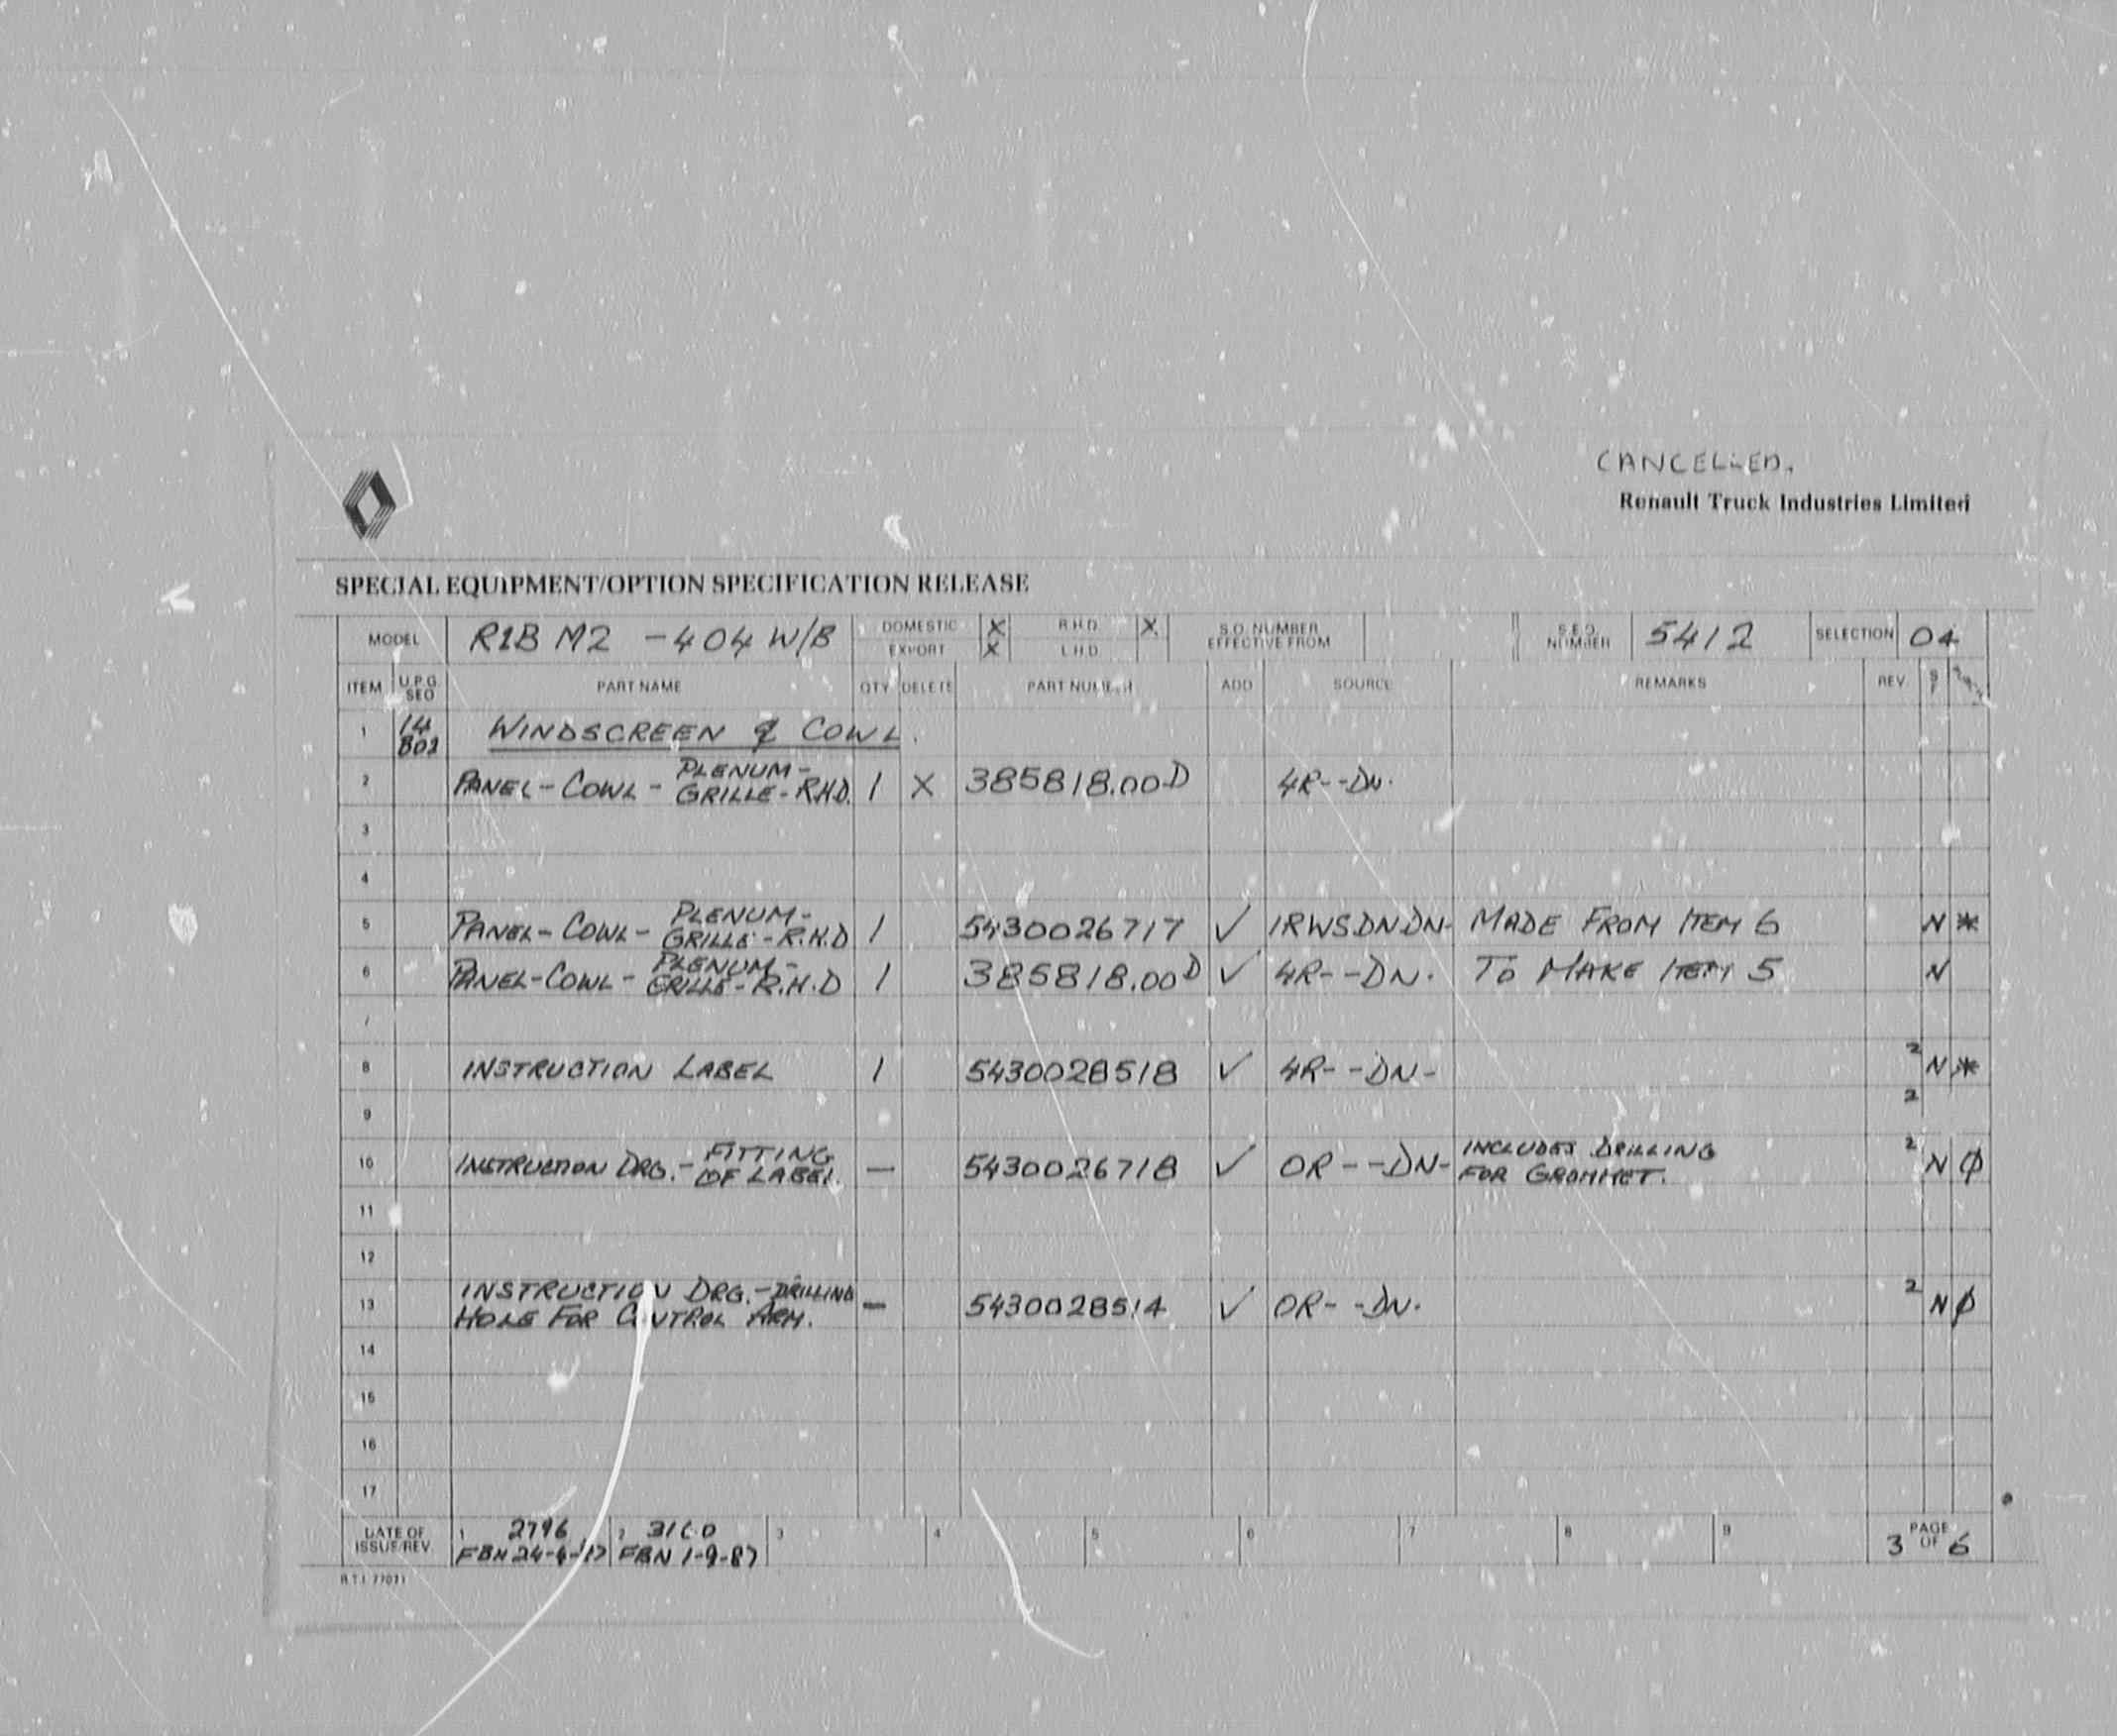 CANCELLED.
Renault Truck Industries Limited
SPECIAL EQUIPMENT/OPTION SPECIFICATION RELEASE
MODEL R1B M2 - 404 W/B DOMESTIC X R.H.D. X S.O. NUMBER EFFECTIVE FROM S.E.O. NUMBER 5412 SELECTION 04
EXPORT X L.H.D.
ITEM U.P.G. SEQ PART NAME QTY DELETE PART NUMBER ADD SOURCE REMARKS REV.
1 14 B02 WINDSCREEN & COWL.
2 PANEL-COWL-PLENUM-GRILLE-R.H.D. 1 X 385818.00D 4R--DN.
3
4
5 PANEL-COWL-PLENUM-GRILLE-R.H.D 1 5430026717 ✓ 1RWSDNDN- MADE FROM ITEM 6 N *
6 PANEL-COWL-PLENUM-GRILLE-R.H.D 1 385818.00D ✓ 4R--DN. TO MAKE ITEM 5 N
7
8 INSTRUCTION LABEL 1 5430028518 ✓ 4R--DN- 2 N *
9 2
10 INSTRUCTION DRG.-FITTING OF LABEL. — 5430026718 ✓ OR--DN- INCLUDES DRILLING FOR GROMMET. 2 N Ø
11
12
13 INSTRUCTION DRG.-DRILLING HOLE FOR CONTROL ARM. — 5430028514 ✓ OR--DN. 2 N Ø
14
15
16
17
DATE OF ISSUE/REV. 1 2796 2 3 4 5 6 7 8 9 PAGE 3 OF 6
FBN 1-9-87
R.T.I. 77071